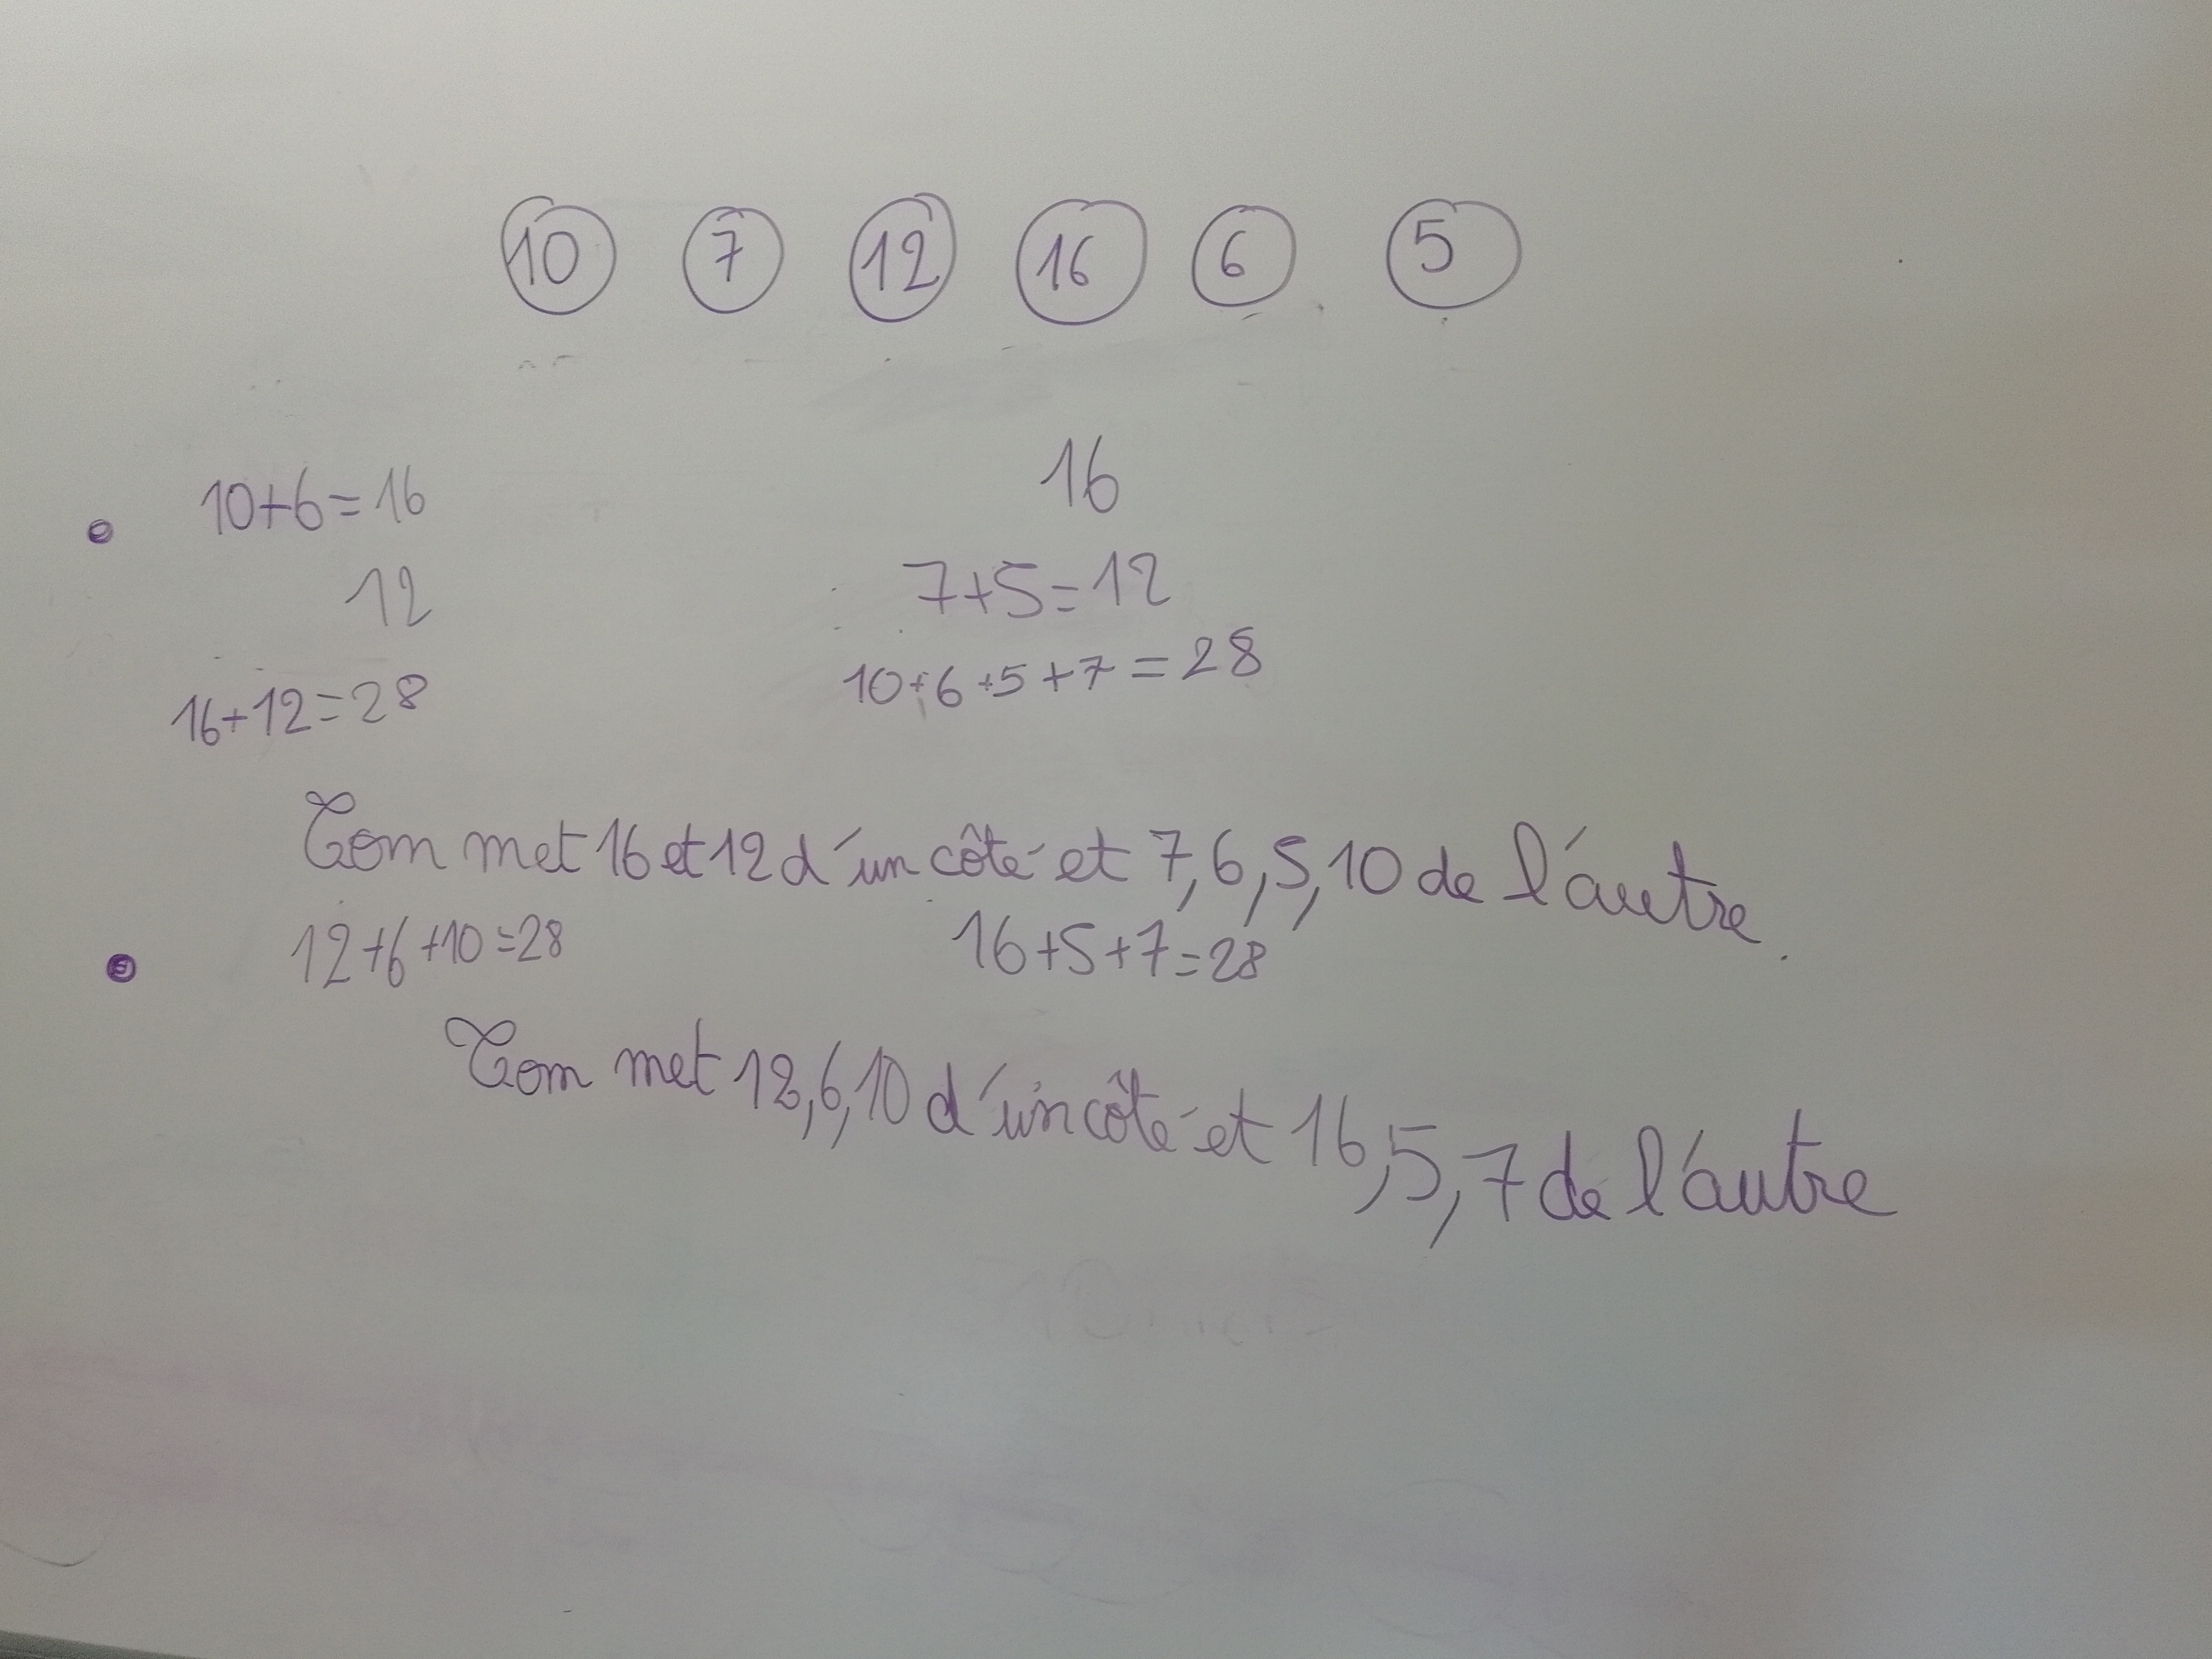 10 7 12 16 6 5
10+6=16 16
12 7+5=12
16+12=28 10+6+5+7=28
Tom met 16 et 12 d'un côté et 7, 6, 5, 10 de l'autre.
12+6+10=28 16+5+7=28
Tom met 12, 6, 10 d'un côté et 16, 5, 7 de l'autre